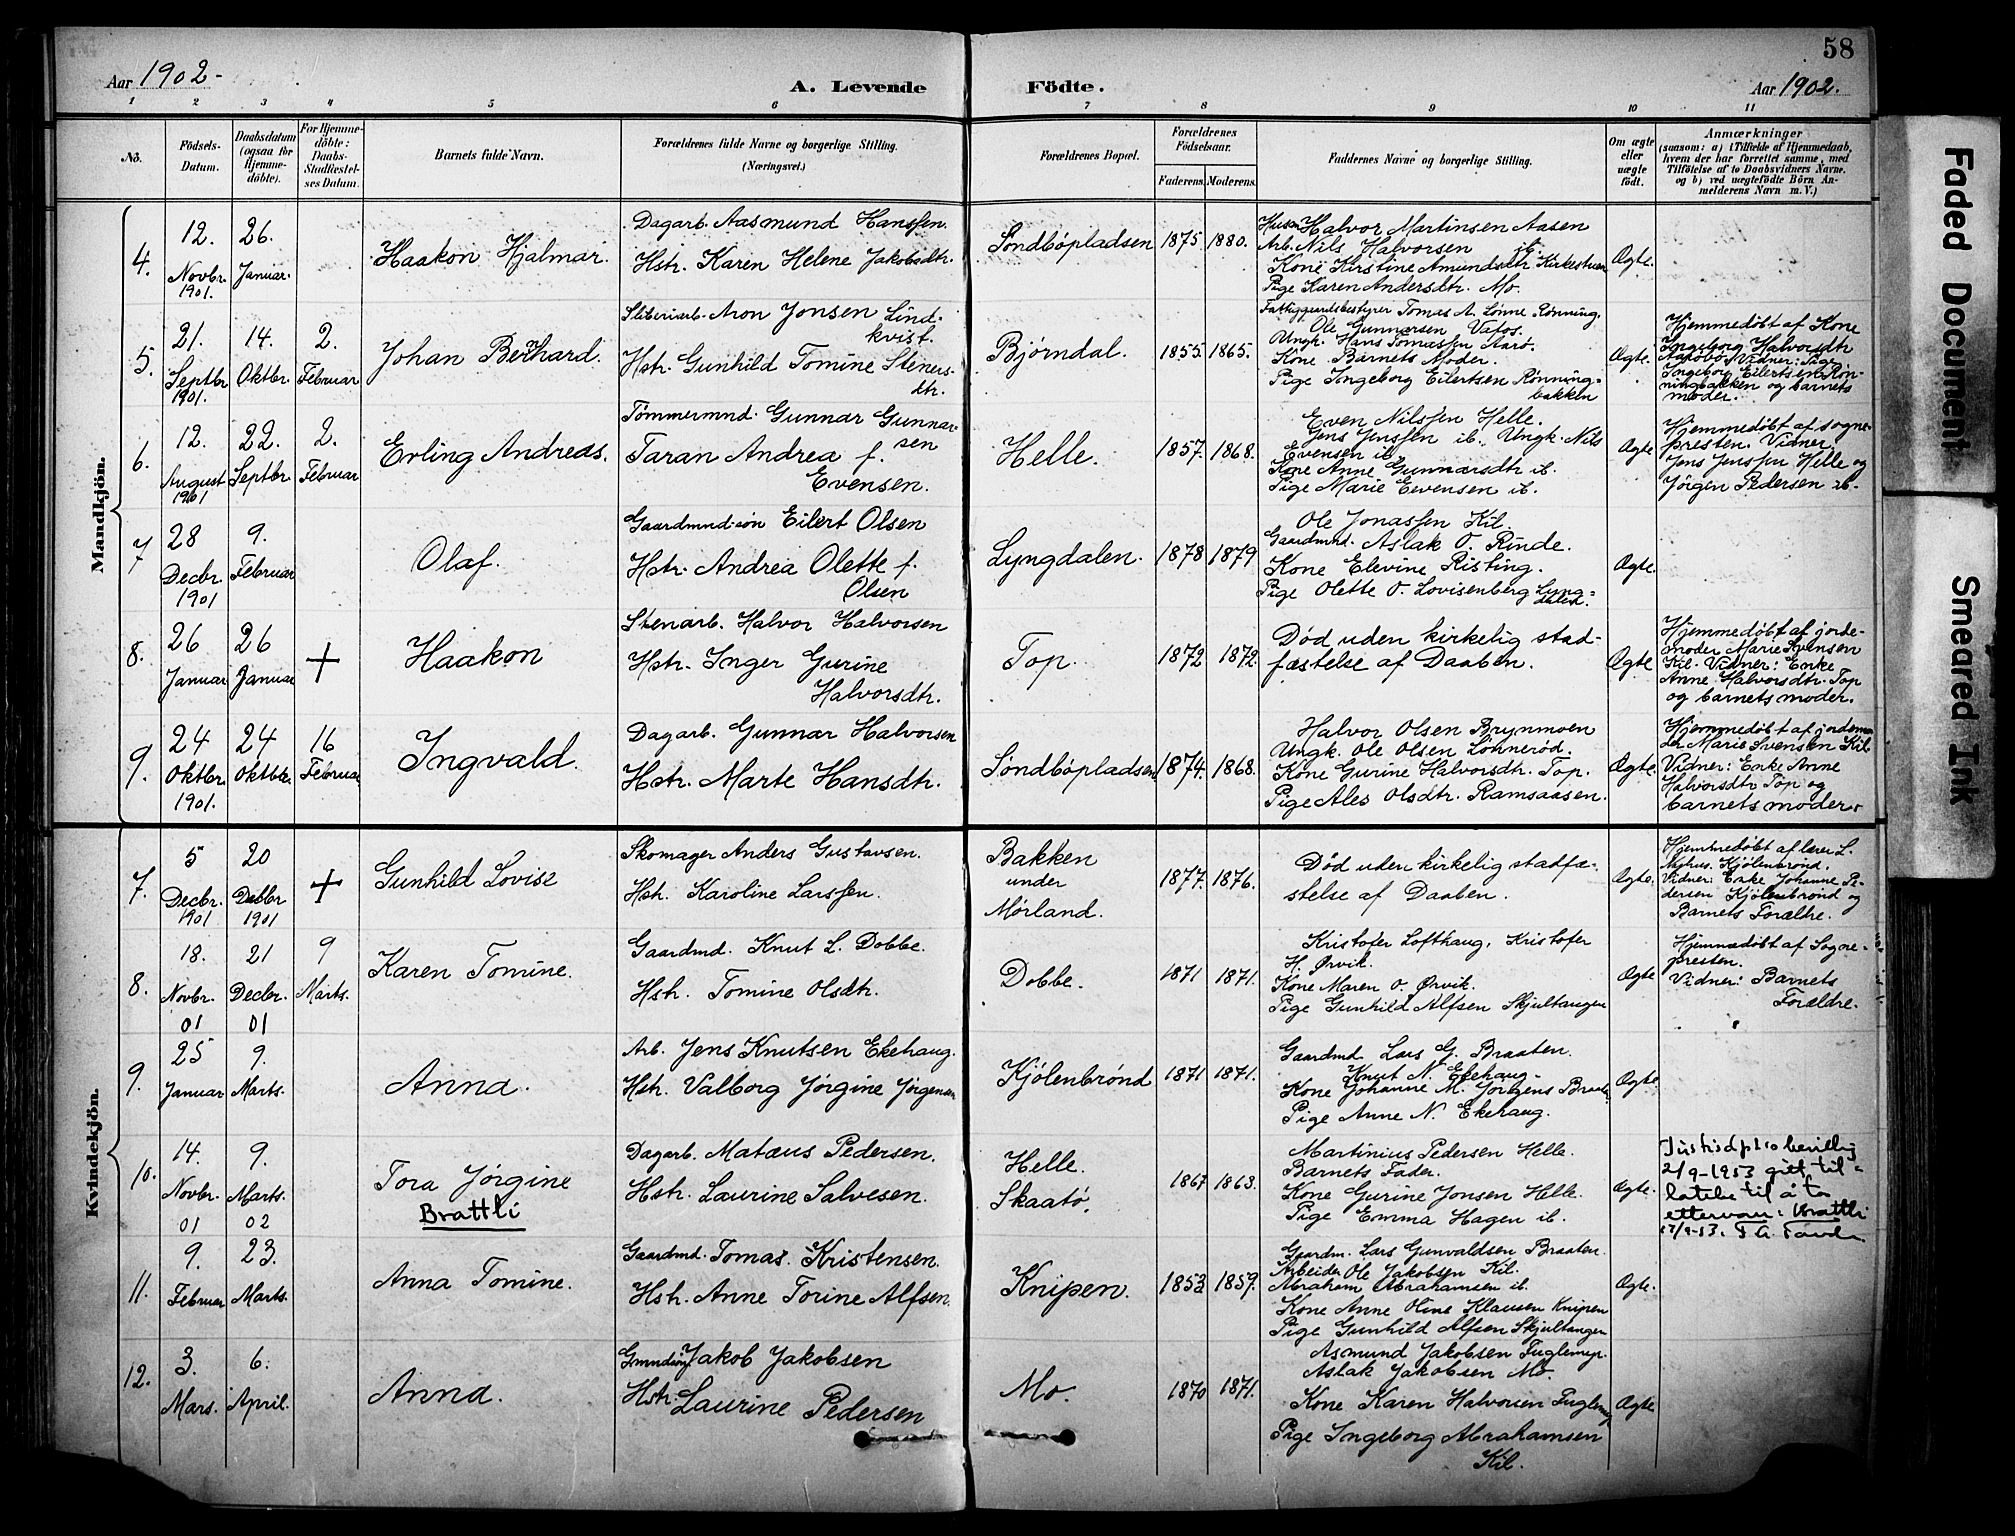 58
Aar 1902-
A. Levende Födte.
Aar 1902.
1 2 3 4 5 6 7 8 9 10 11
No.
Födsels-Datum.
Daabsdatum (ogsaa for Hjemme-döbte).
For Hjemme-döbte: Daabs-Stadfæstel-ses Datum.
Barnets fulde Navn.
Forældrenes fulde Navne og borgerlige Stilling.
(Næringsvei.)
Forældrenes Bopæl.
Forældrenes Födselsaar.
Faderens. Moderens.
Faddernes Navne og borgerlige Stilling.
Om ægte eller uægte födt.
Anmærkninger
(saasom: a) i Tilfælde af Hjemmedaab,
hvem der har forrettet samme, med
Tilföielse af to Daabsvidners Navne,
og b) ved uægtefödte Börn An-
melderens Navn m. V.)
Mandkjön.
4. 12. Novbr. 1901. 26. Januar.
Haakon Hjalmar.
Dagarb. Aasmund Hanssen.
Hstr. Karen Helene Jakobsdtr.
Söndböpladsen 1875 1880.
Husm Halvor Martinsen Aasen
Arb. Nils Halvorsen ib.
Kone Kirstine Amundsdtr. Kirkestuen
Pige Karen Andersdtr. Mo.
Ægte.
5. 21. Septbr. 1901. 14. Oktbr. 2. Februar
Johan Bernhard.
Sliberiarb. Aron Jonsen Lind-
kvist.
Hstr. Gunhild Tomine Steners-
dtr.
Bjørndal. 1855. 1865.
Fattiggaardsbestyrer Tomas A. Lønne Rønning.
Ole Gunnarsen Vafos.
Ungk. Hans Tomassen Aarø.
Kone Barnets Moder.
Pige Ingeborg Eilertsen Rønning-
bakken
Ægte.
Hjemmedøbt af Kone
Ingeborg Halvorsdtr
Vidner: Pige
Ingeborg Eilertsen Røn-
ningbakken og barnets
moder.
6. 12. August 1901 22. Septbr. 2. Februar
Erling Andreas.
Tömmermnd. Gunnar Gunnar-
sen
Taran Andrea f.
Evensen.
Helle. 1857. 1868.
Even Nilssen Helle.
Jens Jenssen ib., Ungk. Nils
Evensen ib.
Kone Anne Gunnarsdtr ib.
Pige Marie Evensen ib.
Ægte
Hjemmedøbt af sogne-
presten. Vidner
Jens Jenssen Helle og
Jörgen Pedersen ib.
7 28 Decbr. 1901 9. Februar
Olaf.
Gaardmnd.sön Eilert Olsen
Hstr. Andrea Olette f.
Olsen
Lyngdalen. 1878 1879
Ole Jonassen Kil.
Gaardmnd. Aslak O. Rinde.
Kone Elevine Risting.
Pige Olette O. Lovisenberg Lyng-
dalen.
Ægte.
8. 26 Januar 26 Januar +
Haakon
Stenarb. Halvor Halvorsen
Hstr. Inger Gurine
Halvorsdtr.
Top. 1872 1872.
Död uden kirkelig stad-
fæstelse af Daaben.
Ægte
Hjemmedøbt af jorde-
moder Marie Svensen
Kil. Vidner: Enke
Anne Halvorsdtr. Top
og barnets moder.
9. 24 Oktbr. 1901. 24 Oktbr. 16 Februar
Ingvald.
Dagarb. Gunnar Halvorsen
Hstr. Marte Hansdtr.
Söndböpladsen 1874. 1868.
Halvor Olsen Brynmoen
Ungk. Ole Olsen Lönneröd.
Kone Gurine Halvorsdtr. Top.
Pige Ales Olsdtr. Ramsaasen.
Ægte.
Hjemmedøbt af jordemo
der Marie Svensen Kil
Vidner: Enke Anne
Halvorsdtr Top og
barnets moder.
Kvindekjön.
7. 5 Decbr. 1901 20 Decbr 1901 +
Gunhild Lovise
Skomager Anders Gustavsen.
Hstr. Karoline Larssen.
Bakken
under
Mørland.
1877. 1876.
Död uden kirkelig stadfæ-
stelse af Daaben.
Ægte.
Hjemmedøbt af lærer L.
Kjölenbrönd.
Vidner: Enke Johanne Pe-
dersen Kjölenbrönd og
Barnets Forældre.
8. 18. Novbr. 01 21 Decbr. 01 9 Marts.
Karen Tomine.
Gaardmd. Knut L. Dobbe.
Hstr. Tomine Olsdtr.
Dobbe. 1871 1871.
Kristofer Lofthaug, Kristofer
H. Ørvik.
Kone Maren O. Ørvik.
Pige Gunhild Alfsen Skjultangen
Ægte
Hjemmedøbt af Sogne-
presten.
Vidner: Barnets
Forældre.
9. 25 Januar 9. Marts.
Anna.
Arb. Jens Knutsen Ekehaug.
Hstr. Valborg Jørgine Jørgensen
Kjölenbrönd 1871 1871.
Gaardmd. Lars G. Braaten.
Knut N. Ekehaug.
Kone Johanne M. Jörgens Braaten
Pige Anne N. Ekehaug.
Ægte
10. 14. Novbr. 01 9. Marts. 02
Tora Jørgine
Brattli
Dagarb. Mataus Pedersen.
Hstr. Laurine Salvesen.
Helle.
Skaatø.
1867 1863.
Martinius Pedersen Helle.
Barnets Fader.
Kone Gurine Jonsen Helle.
Pige Emma Hagen ib.
Ægte.
Justisdptes bevilling
2/9-1953 gitt til-
latelse til å ta
etternavn: Brattli
11. 9. Februar 23. Marts.
Anna Tomine.
Gaardmd. Tomas Kristensen.
Hstr. Anne Torine Alfsen.
Knipen. 1853 1859.
Gaardm. Lars Gunvaldsen Braaten.
Arbeider Ole Jakobsen Kil.
Abraham Abrahamsen ib.
Kone Anne Oline Klausen Knipen
Pige Gunhild Alfsen Skjultangen
Ægte.
12. 3. Mars. 6. April.
Anna.
Jakob Jakobsen
Hstr. Laurine Pedersen
Mo. 1870 1871.
Asmund Jakobsen Fuglemyr.
Aslak Jakobsen Mo.
Kone Karen Halvorsen Fuglemyr
Pige Ingeborg Abrahamsen
Kil.
Ægte
Faded Document
Smeared Ink